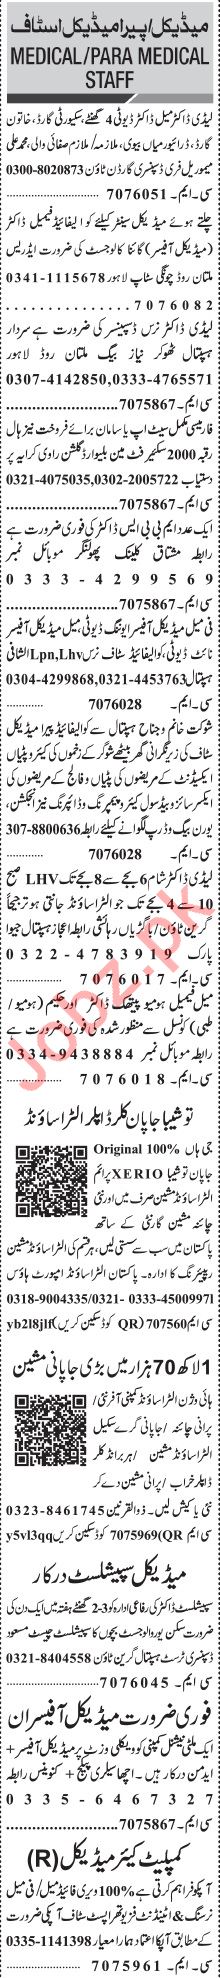 میڈیکل/پیرا میڈیکل اسٹاف
MEDICAL/PARA MEDICAL
STAFF
لیڈی ڈاکٹر میل ڈاکٹر ڈیوٹی 4 گھنٹے، سکیورٹی گارڈ، خاتون
گارڈ، ڈرائیور میاں بیوی، ملازمہ/ ملازم صفائی والی، محمد علی
میموریل فری ڈسپنسری گارڈن ٹاؤن 0300-8020873
سی ایم۔ 7076051
چلتے ہوئے میڈیکل سینٹر کیلئے کوالیفائیڈ فیمیل ڈاکٹر
(میڈیکل آفیسر) گائنا کالوجسٹ کی ضرورت ایڈریس
ملتان روڈ چونگی سٹاپ لاہور 0341-1115678
7076082
لیڈی ڈاکٹر نرس ڈسپنسر کی ضرورت ہے سردار
ہسپتال ٹھوکر نیاز بیگ ملتان روڈ لاہور
0307-4142850,0333-4765571
سی ایم۔ 7075867
فارمیسی مکمل سیٹ اپ یا سامان برائے فروخت نیز ہال
رقبہ 2000 سکیئر فٹ مین بلیوارڈ گلشن راوی کرایہ پر
دستیاب 0321-4075035,0302-2005722
سی ایم۔ 7075867
ایک عدد ایم بی بی ایس ڈاکٹر کی فوری ضرورت ہے
رابطہ مشتاق کلینک پھولنگر موبائل نمبر
0333-4299569
سی ایم۔ 7075867
فی میل میڈیکل آفیسر ایوننگ ڈیوٹی، میل میڈیکل آفیسر
نائٹ ڈیوٹی، کوالیفائیڈ سٹاف نرس Lpn,Lhv الشافی
ہسپتال 0304-4299868,0321-4453763
سی ایم۔ 7076028
شوکت خانم و جناح ہسپتال سے کوالیفائیڈ پیرا میڈیکل
سٹاف کی زیر نگرانی گھر بیٹھے شوگر کے زخموں کی کیئر و پٹیاں
ایکسیڈنٹ کے مریضوں کی پٹیاں و فالج کے مریضوں کی
ایکسرسائز و بیڈ سول کیئر و پیمپرنگ و ڈائپرنگ نیز انجکشن،
یورن بیگ و ڈرپ لگوانے کیلئے رابطہ 307-8800636
سی ایم۔ 7076028
لیڈی ڈاکٹر شام 6 بجے سے 8 بجے تک LHV صبح
10 سے 4 بجے تک جو الٹراساؤنڈ جانتی ہو ترجیحاً
گرین ٹاؤن/ باگڑیاں رہائشی رابطہ اعجاز ہسپتال جیوا
پارک 0322-4783919
سی ایم۔ 7076017
میل فیمیل ہومیو پیتھک ڈاکٹر اور حکیم (ہومیو/
طبی) کونسل سے منظور شدہ کی فوری ضرورت ہے
رابطہ موبائل نمبر 0334-9438884
سی ایم۔ 7076018
توشیبا جاپان کلر ڈاپلر الٹراساؤنڈ
جی ہاں 100% Original
جاپان توشیبا XERIO پرائم
الٹراساؤنڈ مشین صرف میں اور نئی
چائنہ مشین گارنٹی کے ساتھ
پاکستان میں سب سے سستی لیں، ہر قسم کی الٹراساؤنڈ مشین
ریپئرنگ کا ادارہ۔ پاکستان الٹراساؤنڈ امپورٹ ہاؤس
0318-9004335/0321- 0333-4500997l
سی ایم 707560 (QR کوڈ سکین کریں yb2l8jlf)
1 لاکھ 70 ہزار میں بڑی جاپانی مشین
ہائی وژن الٹراساؤنڈ کمپنی آفر نئی/
پرانی چائنہ / جاپانی گرے سکیل
الٹراساؤنڈ مشین /ہر برانڈ کلر
ڈاپلر خراب / پرانی مشین دے کر
نئی یا کیش لیں۔ ذوالقرنین 0323-8461745
سی ایم 7075969 (QR کوڈ سکین کریں y5vl3qq
میڈیکل سپیشلسٹ درکار
سپیشلسٹ ڈاکٹر کی رفاعی ادارہ کو 3-2 گھنٹے ہفتہ میں ایک دن کی
ضرورت سکن یورو الوجسٹ بچوں کا سپیشلسٹ چیسٹ مسعود
ڈسپنسری ٹرسٹ ہسپتال گرین ٹاؤن 0321-8404558
سی ایم۔ 7076045
فوری ضرورت میڈیکل آفیسران
ایک ملٹی نیشنل کمپنی کو ویکلی وزٹ پر میڈیکل آفیسر +
ایڈمن درکار ہیں۔ اچھا سیلری پیکیج + کنوینس رابطہ
0335-6467327
سی ایم۔ 7075867
کمپلیٹ کیئر میڈیکل (R)
آپکو فراہم کرتی ہے 100% ویری فائیڈ میل/ فی میل
نرسنگ & اٹینڈنٹ فزیوتھراپسٹ سٹاف آپکی ضرورت
کے مطابق آپکا اعتماد ہمارا معیار 0335-1141398
سی ایم۔ 7075961
Jobz.pk